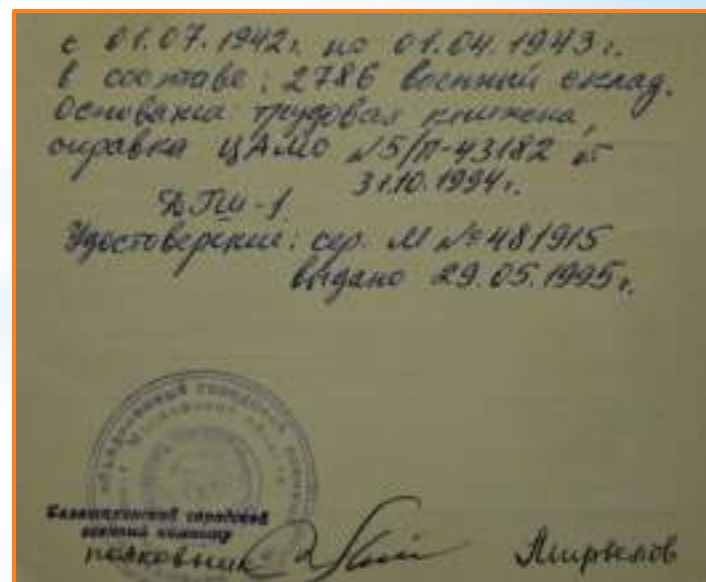 с 01.07.1942г. по 01.04.1943г.
в составе: 2786 военный склад.
Основания трудовая книжка,
справка ЦАМО №5/П-43182 от
31.10.1994г.
Удостоверение: сер. М №481915
выдано 29.05.1995г.
городской
военный
полковник